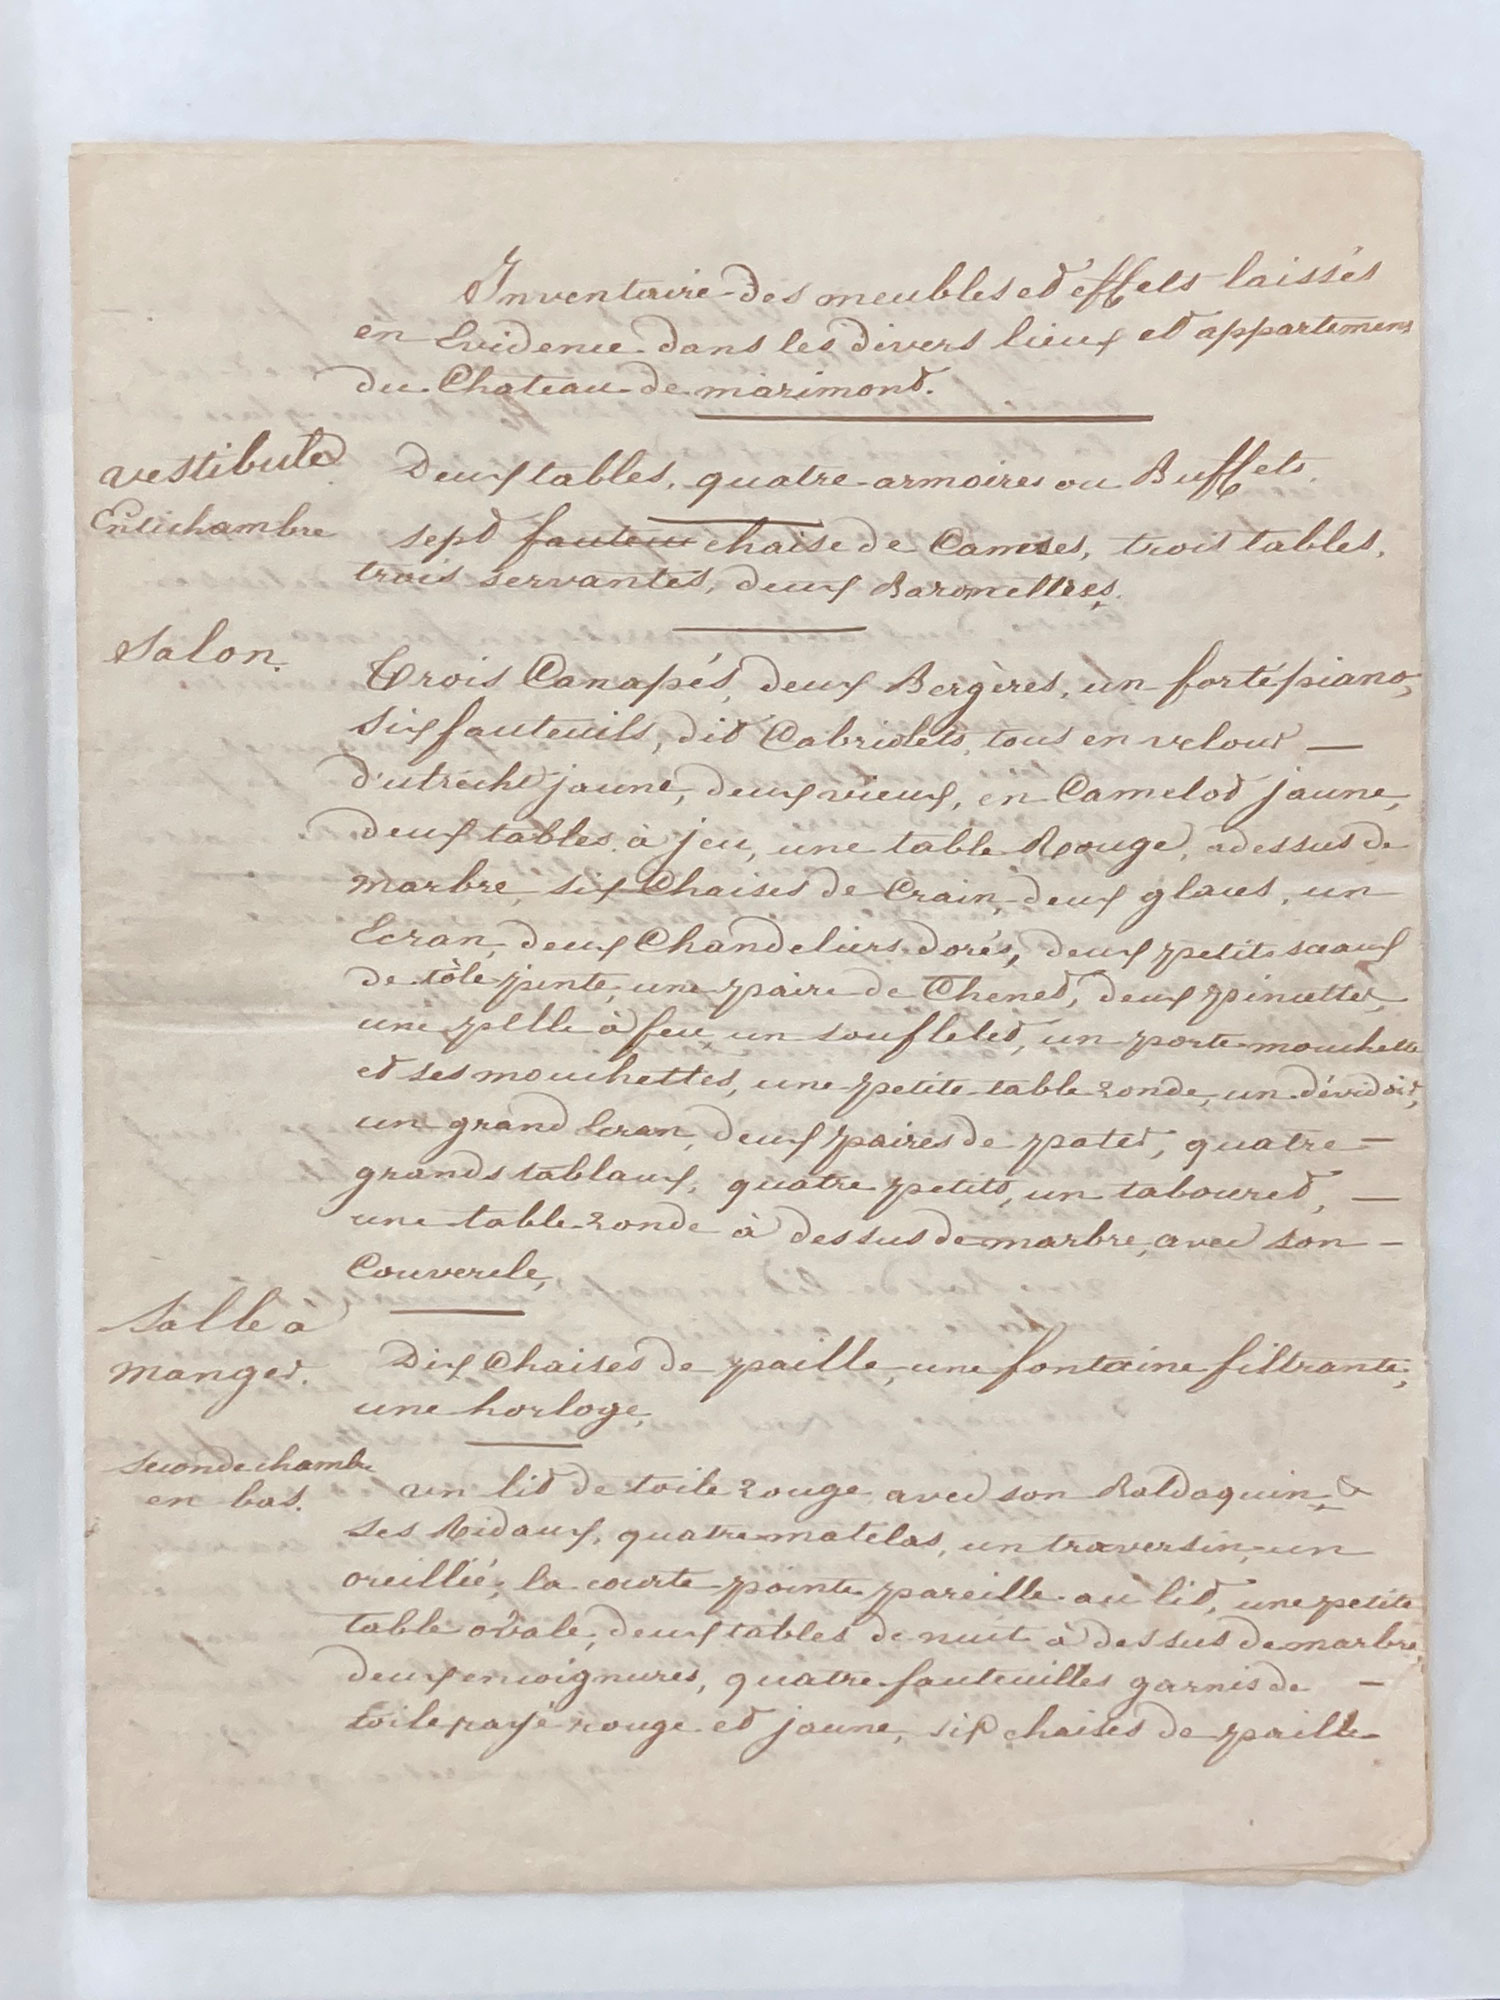 Inventaire des meubles et effets laissés
en Evidence dans les divers lieux et appartemens
du Chateau de marimont.
vestibule
Deux tables, quatre armoires ou Buffets.
Entichambre
sept fauteui chaise de Cannes, trois tables,
trois servantes, deux Baromettres.
Salon.
Trois Canapés, deux Bergères, un fortépiano,
Six fauteuils, dit Cabriolets, tous en velour —
d'utrecht jaune, deux vieux, en Camelot jaune,
deux tables à jeu, une table Rouge, adessus de
marbre, six Chaises de Crain, deux glaces, un
Ecran, deux Chandeliers dorés, deux petits sceaux
de tôle pinte, une paire de Chenet, deux pincettes,
une pelle à feu, un soufflet, un porte mouchette
et ses mouchettes, une petite table ronde, un dévidoir,
un grand Ecran, deux paires de patet, quatre —
grands tablaux, quatre petits, un tabouret, —
une table ronde à dessus de marbre, avec son —
Couvercle,
Salle à
manger.
Dix Chaises de paille, une fontaine filtrante,
une horloge,
seconde chambre
en bas.
un lit de toile rouge avec son Baldaquin, &
ses Ridaux, quatre matelas, un traversin, un
oreillié, la courte pointe pareille au lit, une petite
table ovale, deux tables de nuit à dessus de marbre,
deux encoignures, quatre fauteuilles garnis de —
toile rayé rouge et jaune, six chaises de paille